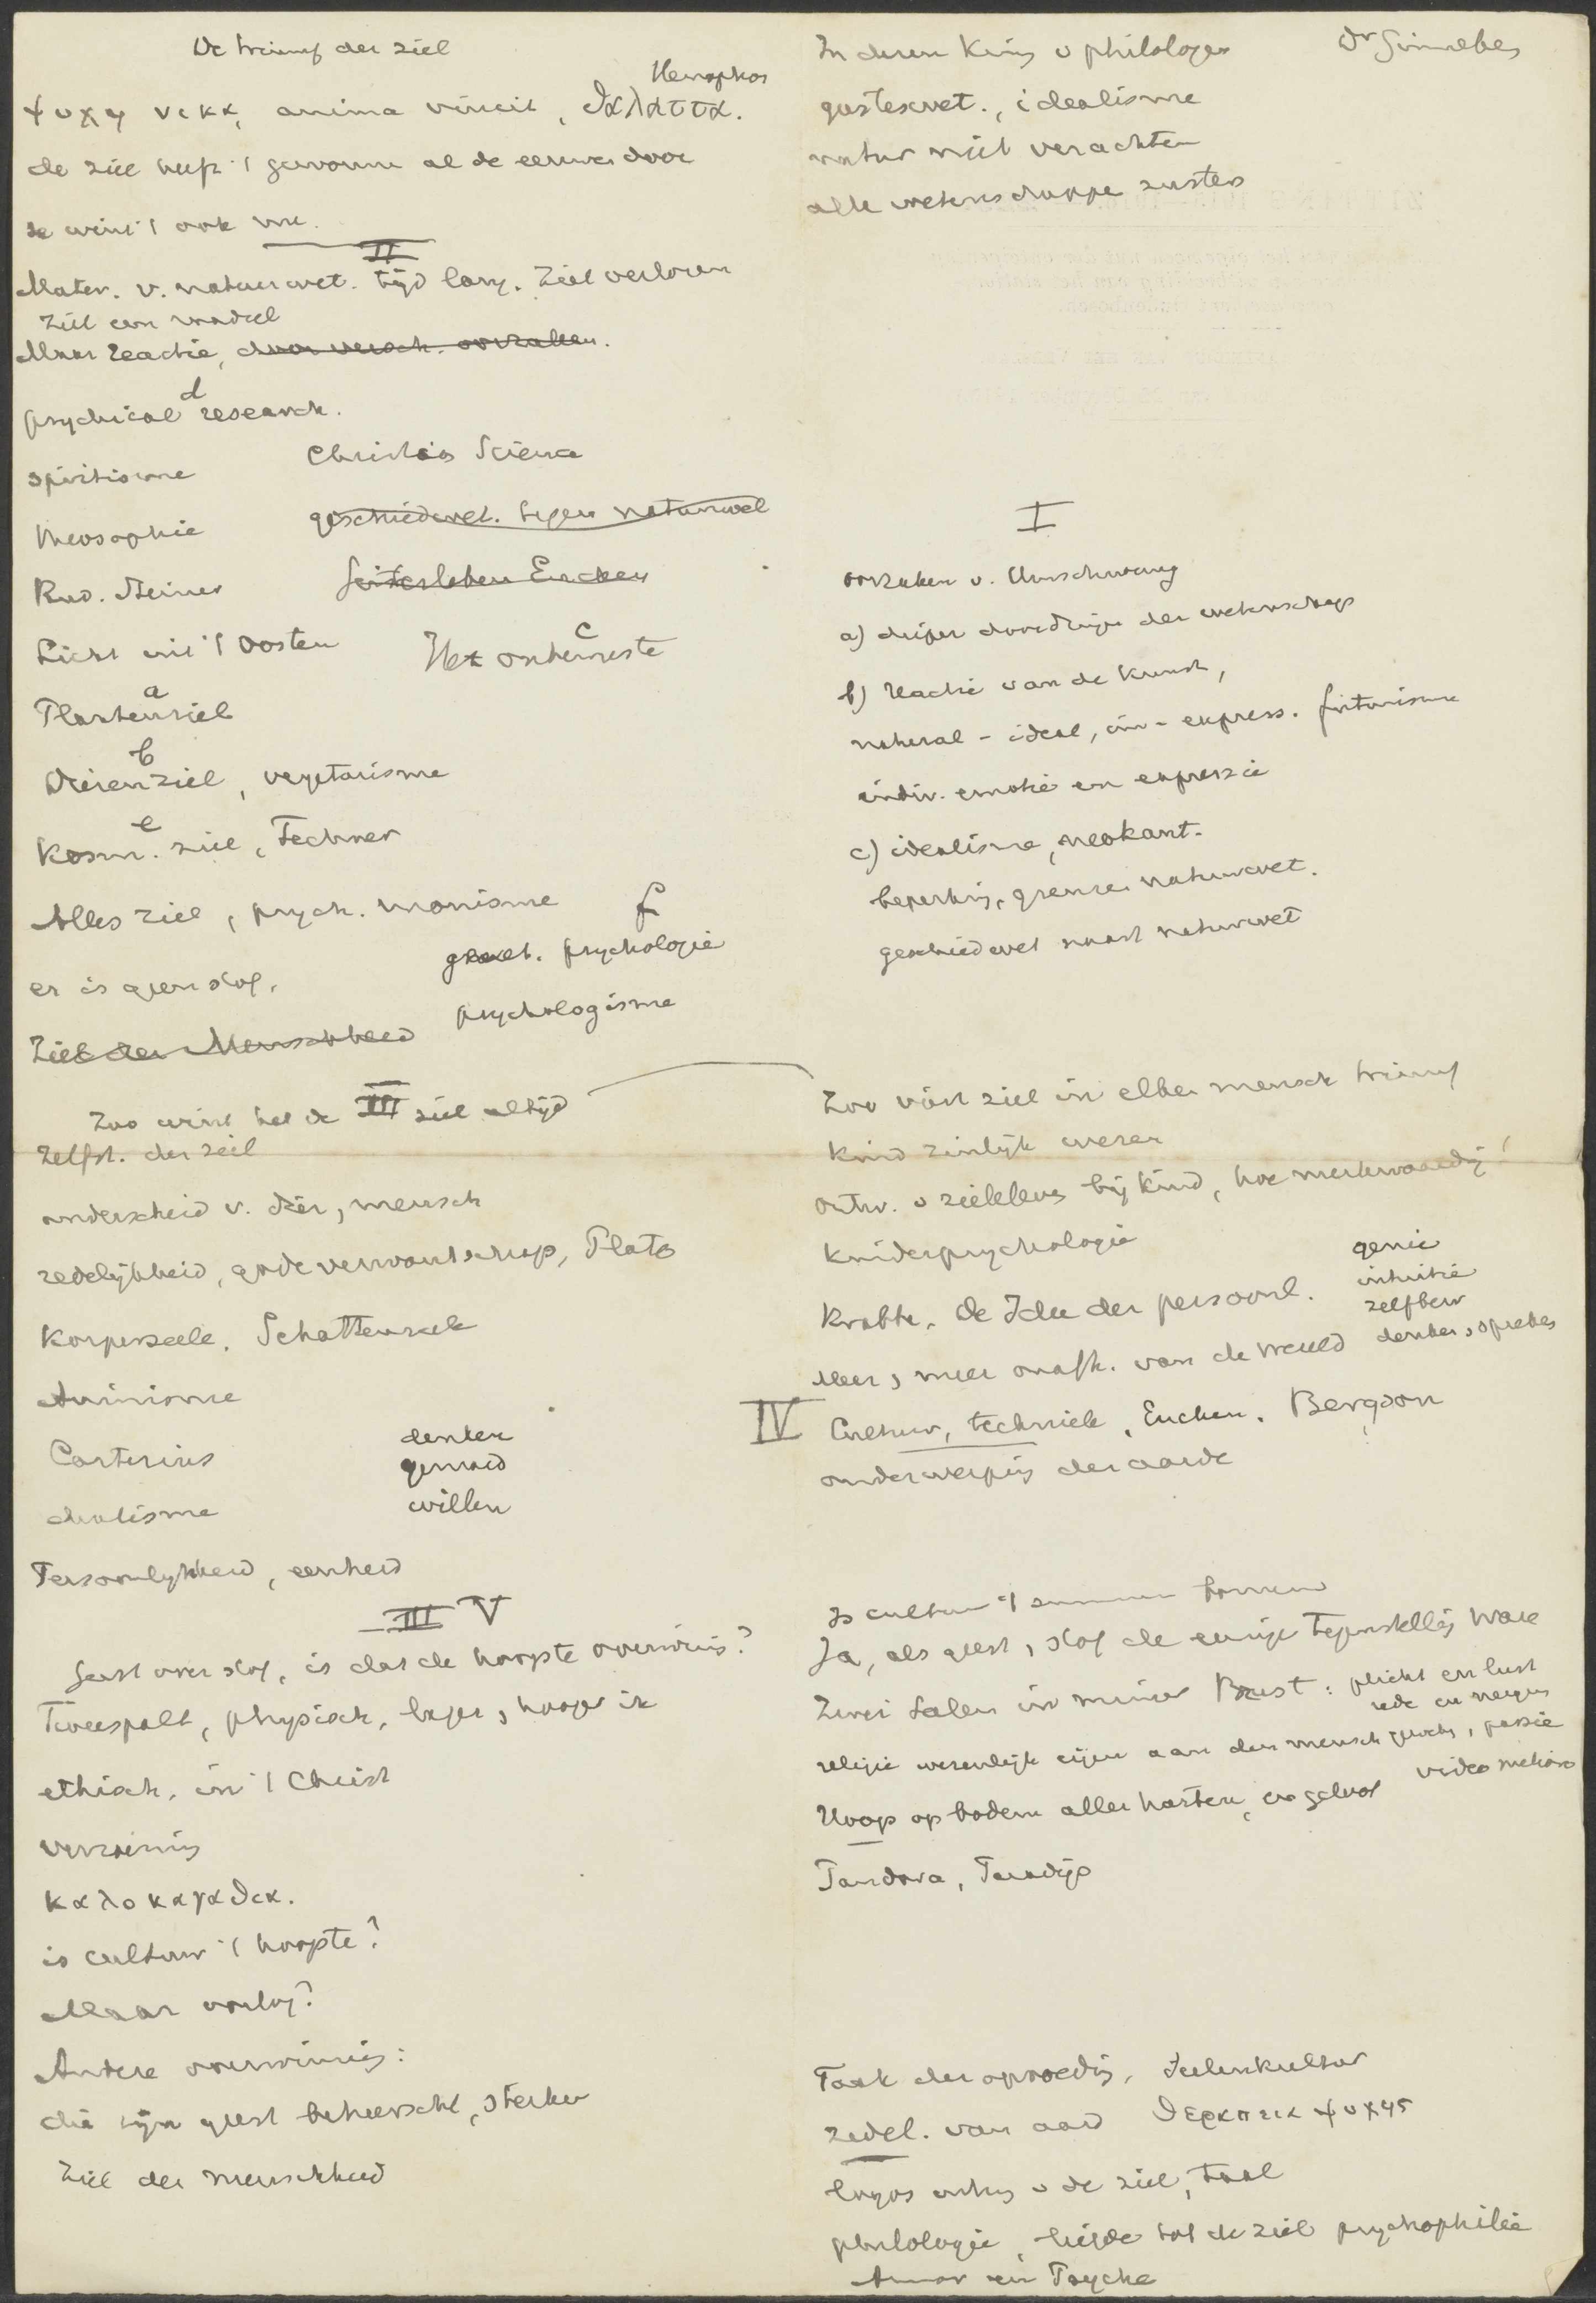 De triumf der ziel
Xenophon
ψυχη νικα, anima vincit, θαλαττα.
de ziel heeft 't gewonnen al de eeuwen door
ze wint 't ook nu.
II
Mater. v. natuurwet. tijd lang. Ziel verloren
Ziel een raadsel
Maar reactie, door versch. oorzaken.
d
psychical research.
spiritisme
Christian Science
theosophie
geschiedwet. tegen natuurwet
Rud. Steiner
Geistesleben Eucken
Licht uit 't Oosten
c
Het onbewuste
a
Plantenziel
b
Dierenziel, vegetarisme
e
Kosm. ziel, Fechner
Alles ziel, psych. monisme
f
er is geen stof.
psychologie
psychologisme
Ziel der Menschheid
III
Zoo wint het de ziel altijd
Zelfst. der ziel
onderscheid v. dier, mensch
redelijkheid, godeverwantschap, Plato
Korperseele, Schattenseele
Animisme
Cartesius
dualisme
denken
gemoed
willen
Persoonlijkheid, eenheid
III V
Geest over stof, is dat de hoogste overwinning?
Tweespalt, physisch, lager, hooger ik
ethisch, in 't Christ
verzoening
καλοκαγαθια.
is cultuur 't hoogste?
Maar oorlog?
Andere overwinning:
die zijn geest beheerscht, sterker
Ziel der menschheid
In dezen kring v philologen
Dr Sinnebes
geesteswet., idealisme
natuur niet verachten
alle wetenschappen zusters
I
oorzaken v. Umschwung
a) dieper doordringen der wetenschap
b) reactie van de kunst,
natural - ideal, im - express. futurisme
indiv. emotie en expressie
c) idealisme, neokant.
beperking, grenzen natuurwet.
geschiedwet naast natuurwet
Zoo viert ziel in elken mensch triumf
Kind zinlijk wezen
ontw. v zieleleven bij kind, hoe merkwaardig!
Kinderpsychologie
Krabbe, de Idee der persoonl.
genie
intuitie
zelfbew
denken, spreken
Meer, meer onafh. van de wereld
IV Cultuur, techniek, Eucken, Bergson
onderwerping der aarde
Is cultuur 't summum bonum
Ja, als geest, stof de eenige tegenstelling ware
Zwei Seelen in meiner Brust: plicht en lust
rede en neiging
religie wezenlijk eigen aan den mensch
passie
video meliora
Hoop op bodem aller harten, en geloof
Pandora, Paradijs
Taak der opvoeding, Seelenkultur
zedel. van aard θεραπεια ψυχης
logos v de ziel, taal
philologie, liefde tot de ziel psychophilie
Amor en Psyche